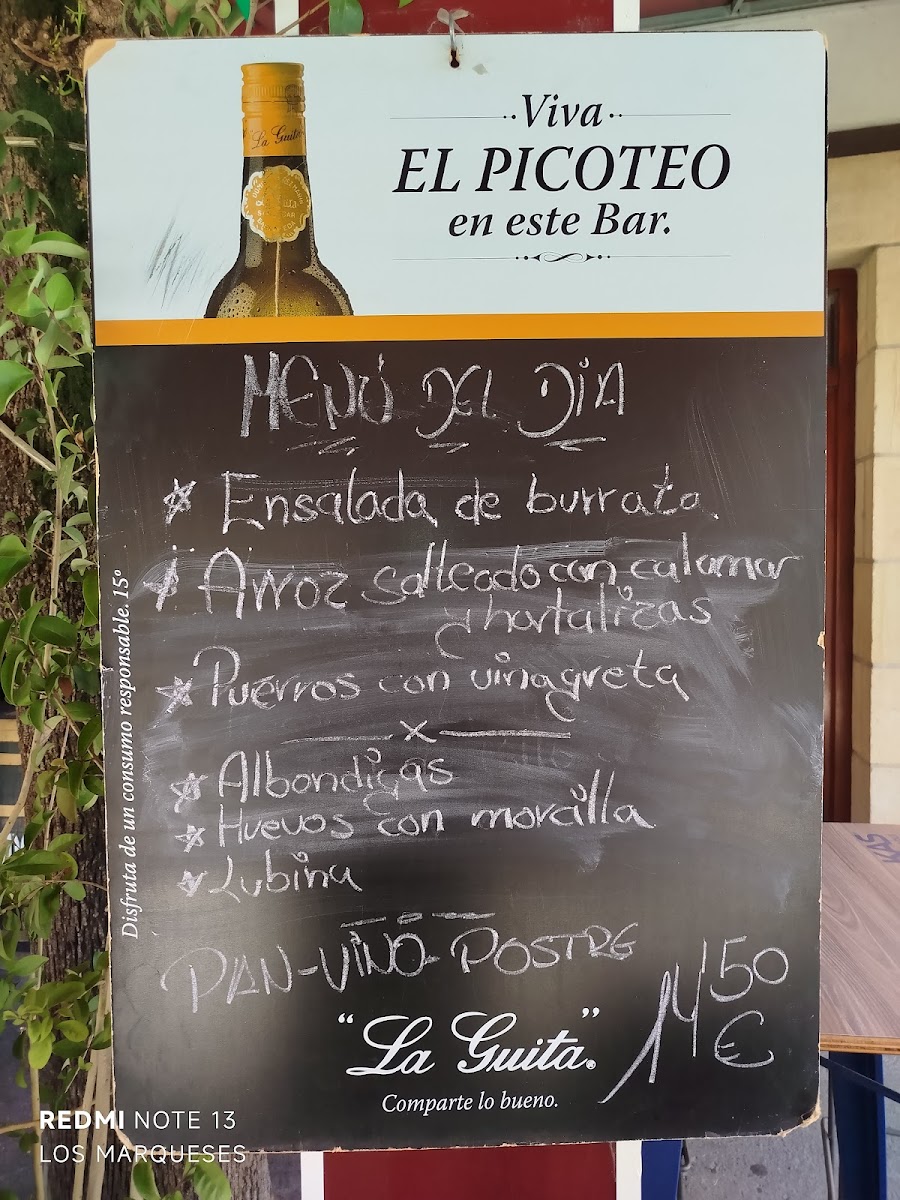 "La Guita"
Viva
EL PICOTEO
en este Bar.
MENÚ DEL DIA
Ensalada de burrata
Arroz salteado con calamar
y hortalizas
Puerros con vinagreta
x
Albondigas
Huevos con morcilla
Lubina
PAN-VINO-POSTRE
14'50
€
"La Guita"®
Comparte lo bueno.
Disfruta de un consumo responsable. 15°
REDMI NOTE 13
LOS MARQUESES